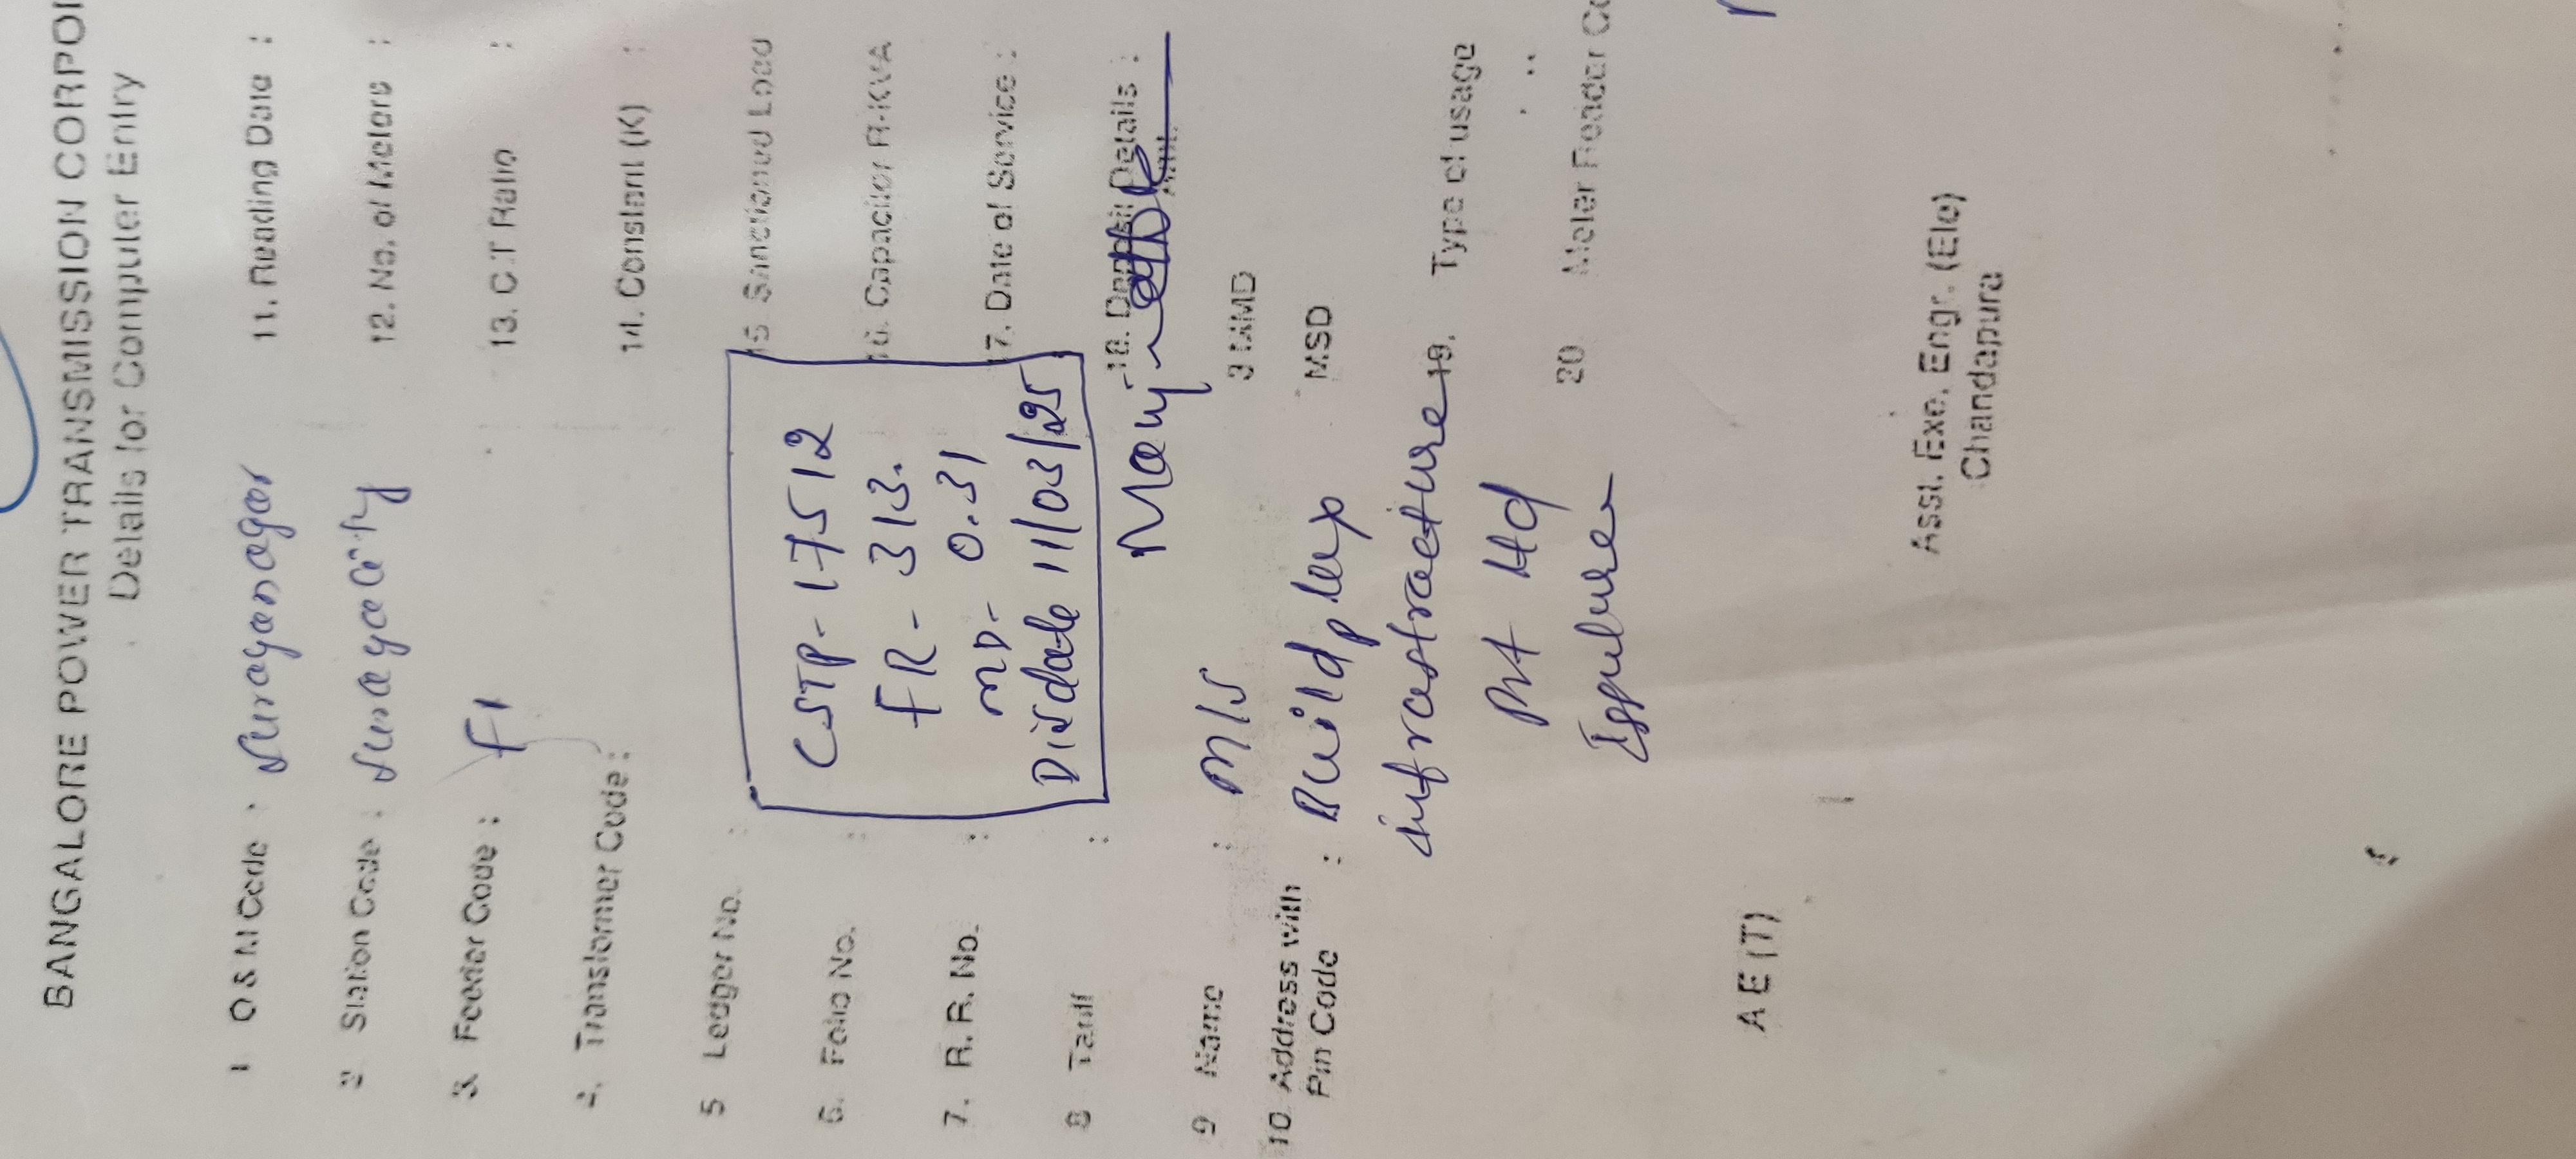 BANGALORE POWER TRANSMISSION CORPO
Details for Computer Entry
1 O & M Code : Suryanagar
2 Station Code : Suryacity
3. Feeder Code : F1
4. Transformer Code :
5 Ledger No. :
6. Folio No. :
7. R. R. No. :
8 Tariff :
9 Name : M/s
10. Address with : Buildplex
Pin Code infrastracture
Pvt Ltd
A E (T)
CSTP - 17512
FR - 313.
MD - 0.31
Disdate 11/03/25
11. Reading Date :
12. No. of Meters :
13. C.T Ratio :
14. Constant (K) :
15. Sanctioned Load
16. Capacitor R-KVA
17. Date of Service :
18. Deposit Details :
Amt.
3 MMD
MSD
19. Type of usage
20 Meter Reader Co
Asst. Exe. Engr. (Ele)
Chandapura